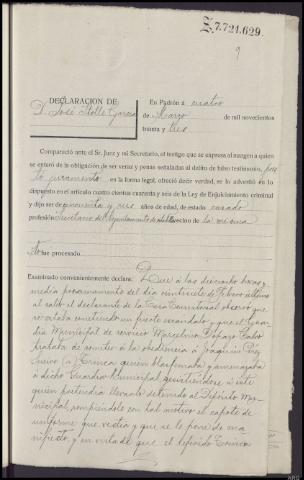 Z.7.721.629.
9
DECLARACION DE
D. José Stolle García
En Padrón á cuatro
de Marzo de mil novecientos
treinta y tres
Compareció ante el Sr. Juez y mi Secretario, el testigo que se expresa al margen a quien
se enteró de la obligación de ser veraz y penas señaladas al delito de falso testimonio, pres
tó juramento en la forma legal, ofreció decir verdad, se le advertió en lo
dispuesto en el artículo cuatro cientos cuarenta y seis de la Ley de Enjuiciamiento criminal
y dijo ser de cincuenta y seis años de edad, de estado casado
profesión Secretario del Ayuntamiento de de la misma
No fue procesado
Examinado convenientemente declara: Que á las diecinueve horas y
media proximamente del día veintisiete de Febrero último
al salir el declarante de la Casa Consistorial observó que
se estaba cometiendo un fuerte escándalo y que el Guar
dia Municipal de servicio Marcelino Calvo
trataba de someter á la obediencia á Joaquín
Sueiro (a) Erinca quien blasfemaba y amenazaba
á dicho Guardia Municipal resistiéndose á este
quien pretendía llevarlo detenido al Depósito Mu-
nicipal, rompiéndole con tal motivo el capote de
uniforme que vestía y que se le pone de ma-
nifiesto, y en vista de que el referido Erinca